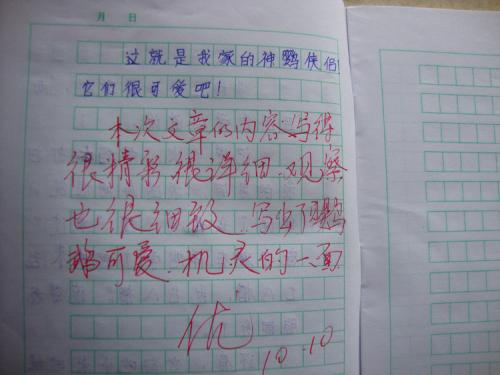 月 日
这就是我家的神鹦侠侣!
它们很可爱吧!
本次文章的内容写得
很精彩很详细.观察
也很细致.写出了鹦
鹉可爱.机灵的一面
优
10.10